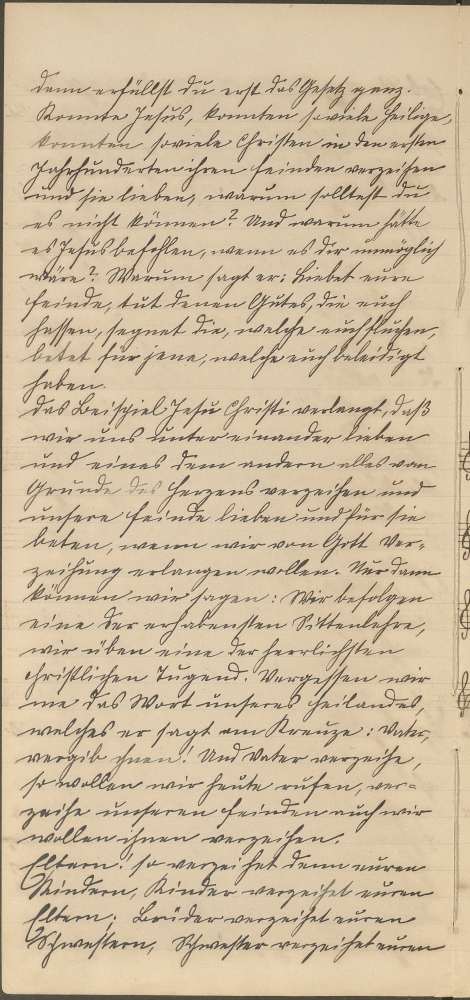 dann erfüllst du erst das Gesetz ganz.
Konnte Jesus, konnten soviele Heilige,
konnten soviele Christen in den ersten
Jahrhunderten ihren Feinden verzeihen
und sie lieben, warum solltest du
es nicht können? Und warum hätte
es Jesus befohlen, wenn es dir unmöglich
wäre? Warum sagt er: Liebet eure
Feinde, tut denen Gutes, die euch
hassen, segnet die, welche euch fluchen,
betet für jene, welche euch beleidigt
haben.
Das Beispiel Jesu Christi verlangt, daß
wir uns unter einander lieben
und eines dem andern alles vom
Grunde des Herzens verzeihen und
unsere Feinde lieben und für sie
beten, wenn wir von Gott Ver-
zeihung erlangen wollen. Nur dann
können wir sagen: Wir befolgen
eine der erhabensten Sittenlehre,
wir üben eine der herrlichsten
christlichen Tugend. Vergessen wir
nie das Wort unseres Heilandes,
welches er sagt am Kreuze: Vater,
vergib ihnen! Und Vater verzeihe,
so wollen wir heute rufen, ver-
zeihe unseren Feinden auch wir
wollen ihnen verzeihen.
Eltern! so verzeihet denn euren
Kindern, Kinder verzeihet euren
Eltern; Brüder verzeihet euren
Schwestern, Schwester verzeihet euren